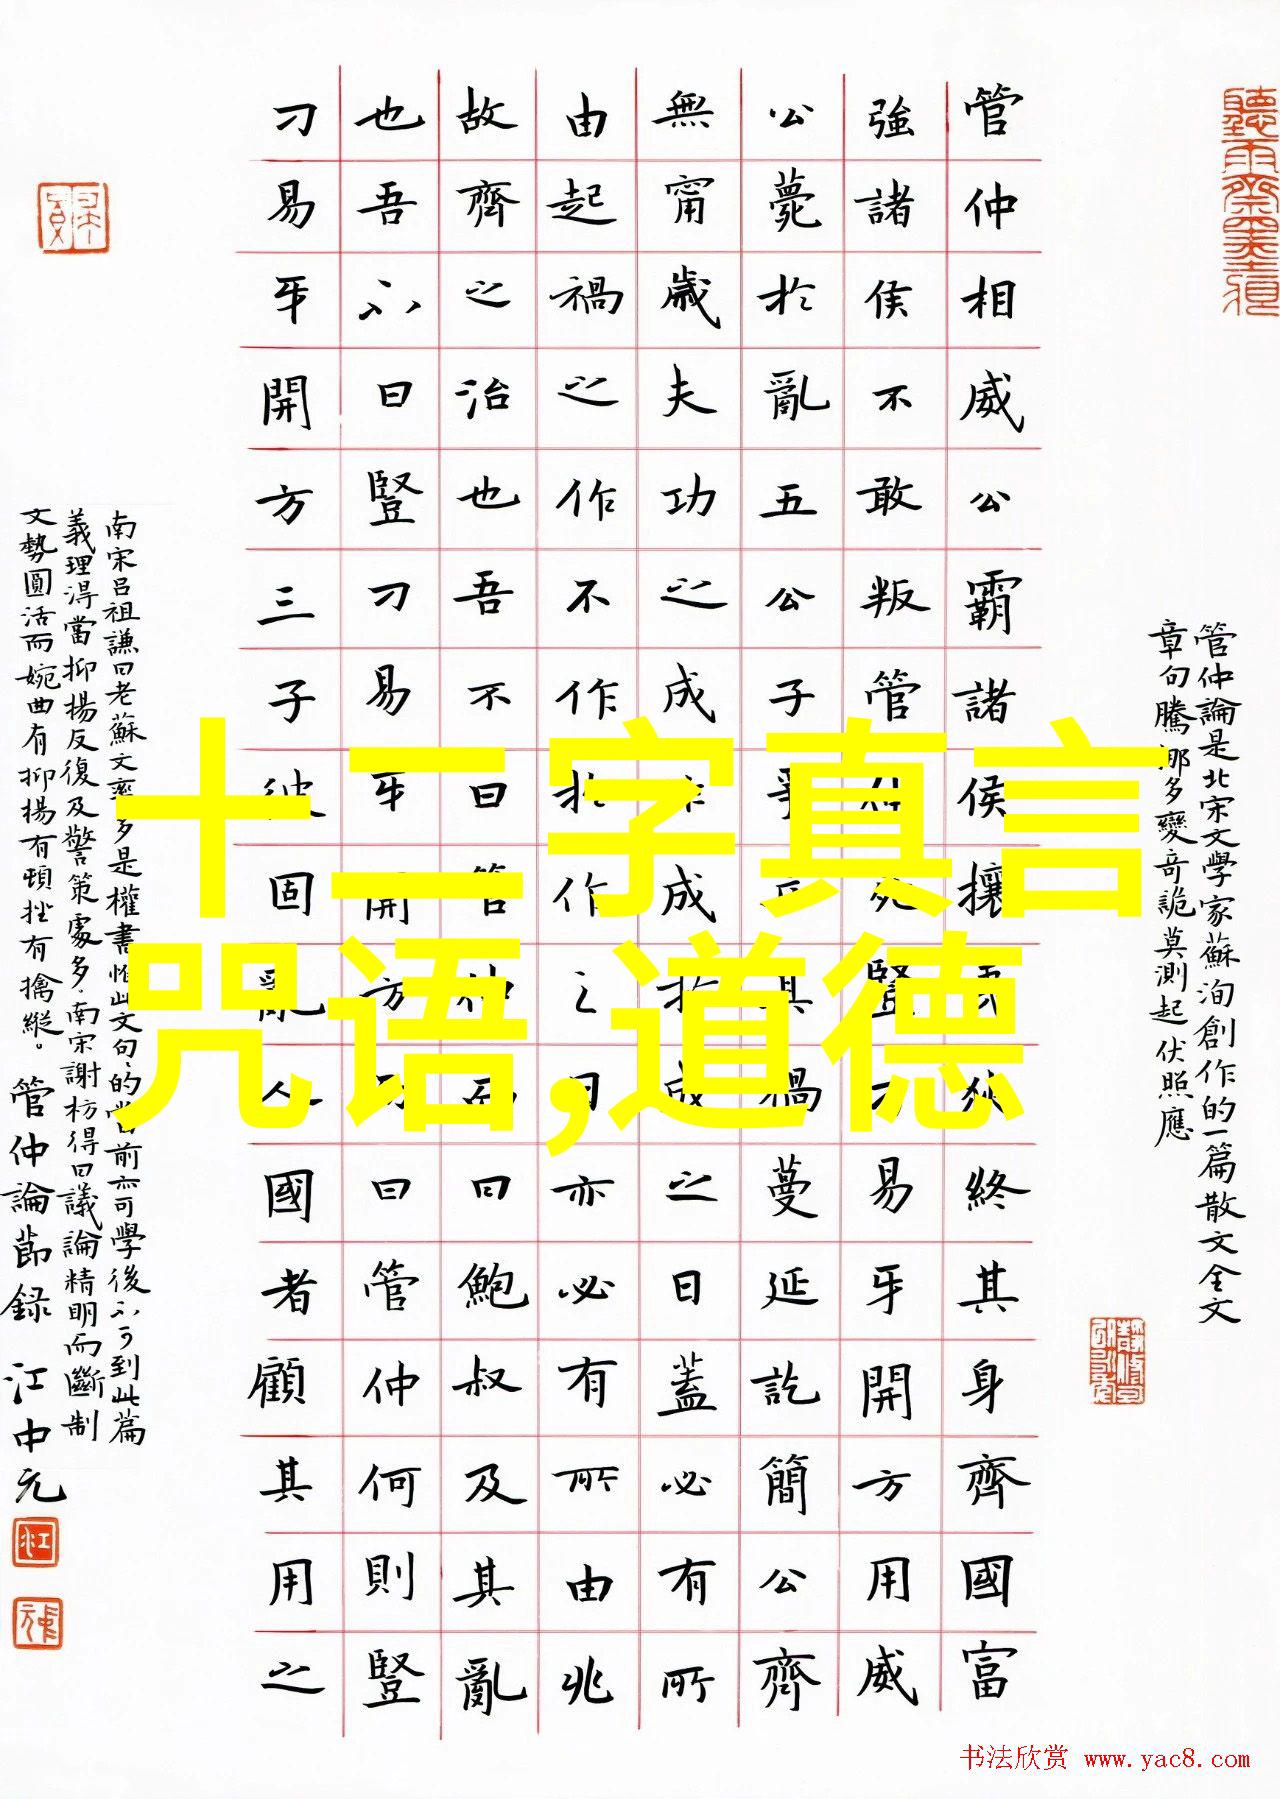 管仲論是北宋文學家蘇洵創作的一篇散文全文
章句騰挪多變奇詭莫測起伏照應
管仲相威公霸諸侯攘戎狄終其身齊國富
強諸侯不敢叛管仲死豎刁易牙開方用威
公薨於亂五公子爭立其禍蔓延訖簡公齊
無甯歲夫功之成非成於成之日蓋必有所
由起禍之作不作於作之日亦必有所由兆
故齊之治也吾不曰管仲而曰鮑叔及其亂
也吾不曰豎刁易牙開方而曰管仲何則豎
刁易牙開方三子彼固亂人國者顧其用之
南宋呂祖謙曰老蘇文多是權書惟此文句句的當前亦可學後不可到此篇
義理淂當抑揚反復及警策處多南宋謝枋得曰議論精明而斷制
文勢圓活而婉曲有抑揚有頓挫有擒縱。管仲論節録 江中元
十二字真言
咒语,道德
书法欣赏 www.yac8.com